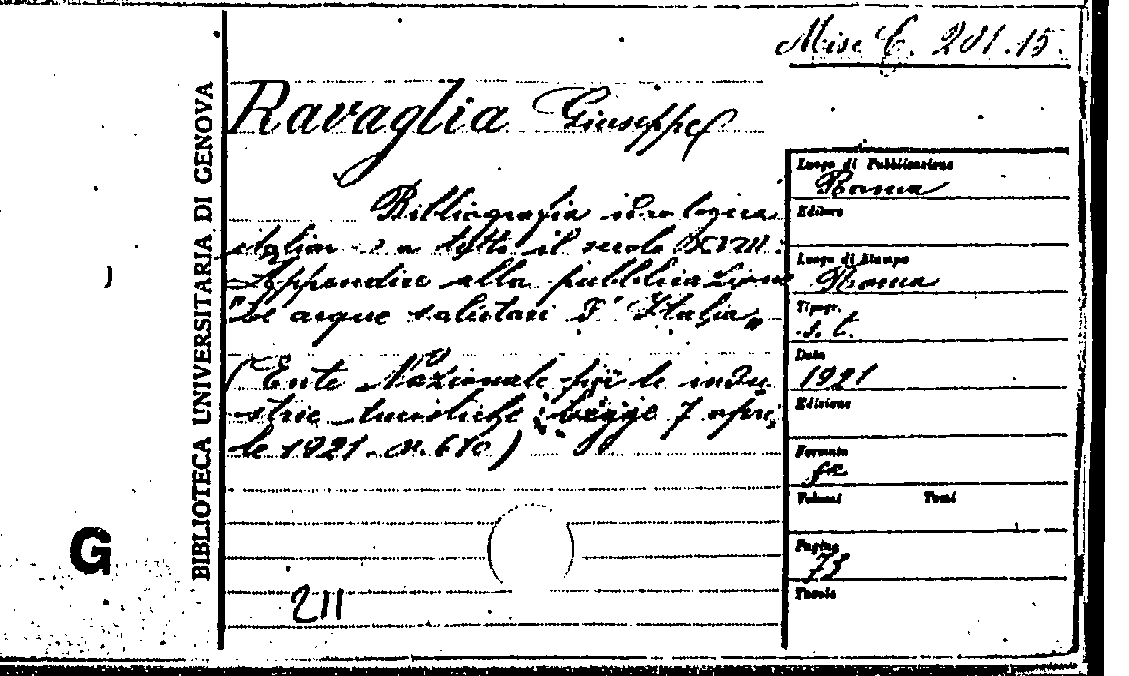 Misc C. 201.15.
BIBLIOTECA UNIVERSITARIA DI GENOVA
Ravaglia Giuseppe
Bibliografia idrologica
italiana a tutto il secolo XVIII:
Appendice alla pubblicazione
"Le acque salutari d'Italia„
(Ente Nazionale per le indu
strie turistiche; legge 7 apri
le 1921 - n. 610)
211
G
Luogo di Pubblicazione
Roma
Editore
Luogo di Stampa
Roma
Tipogr.
s. t.
Data
1921
Edizione
Formato
Volumi Tomi
Pagine
73
Tavole